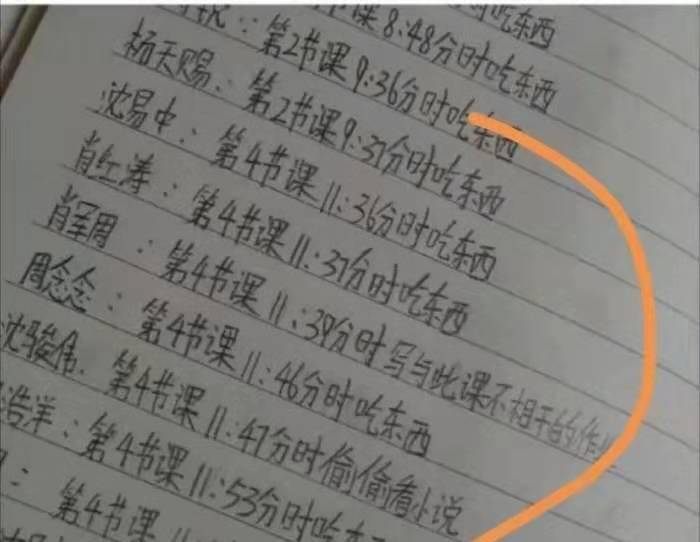 时吃东西
课8:48分时吃东西
锐:第2节课9:36分时吃东西
杨天赐:第2节课9:37分时吃东西
沈易中:第4节课11:36分时吃东西
肖红涛:第4节课11:37分时吃东西
肖军周:第4节课11:39分时写与此课不相干的作业
周念念:第4节课11:46分时吃东西
沈骏伟.第4节课11:47分时偷偷看小说
浩洋:第4节课11:53分时吃东
:第4节课11: